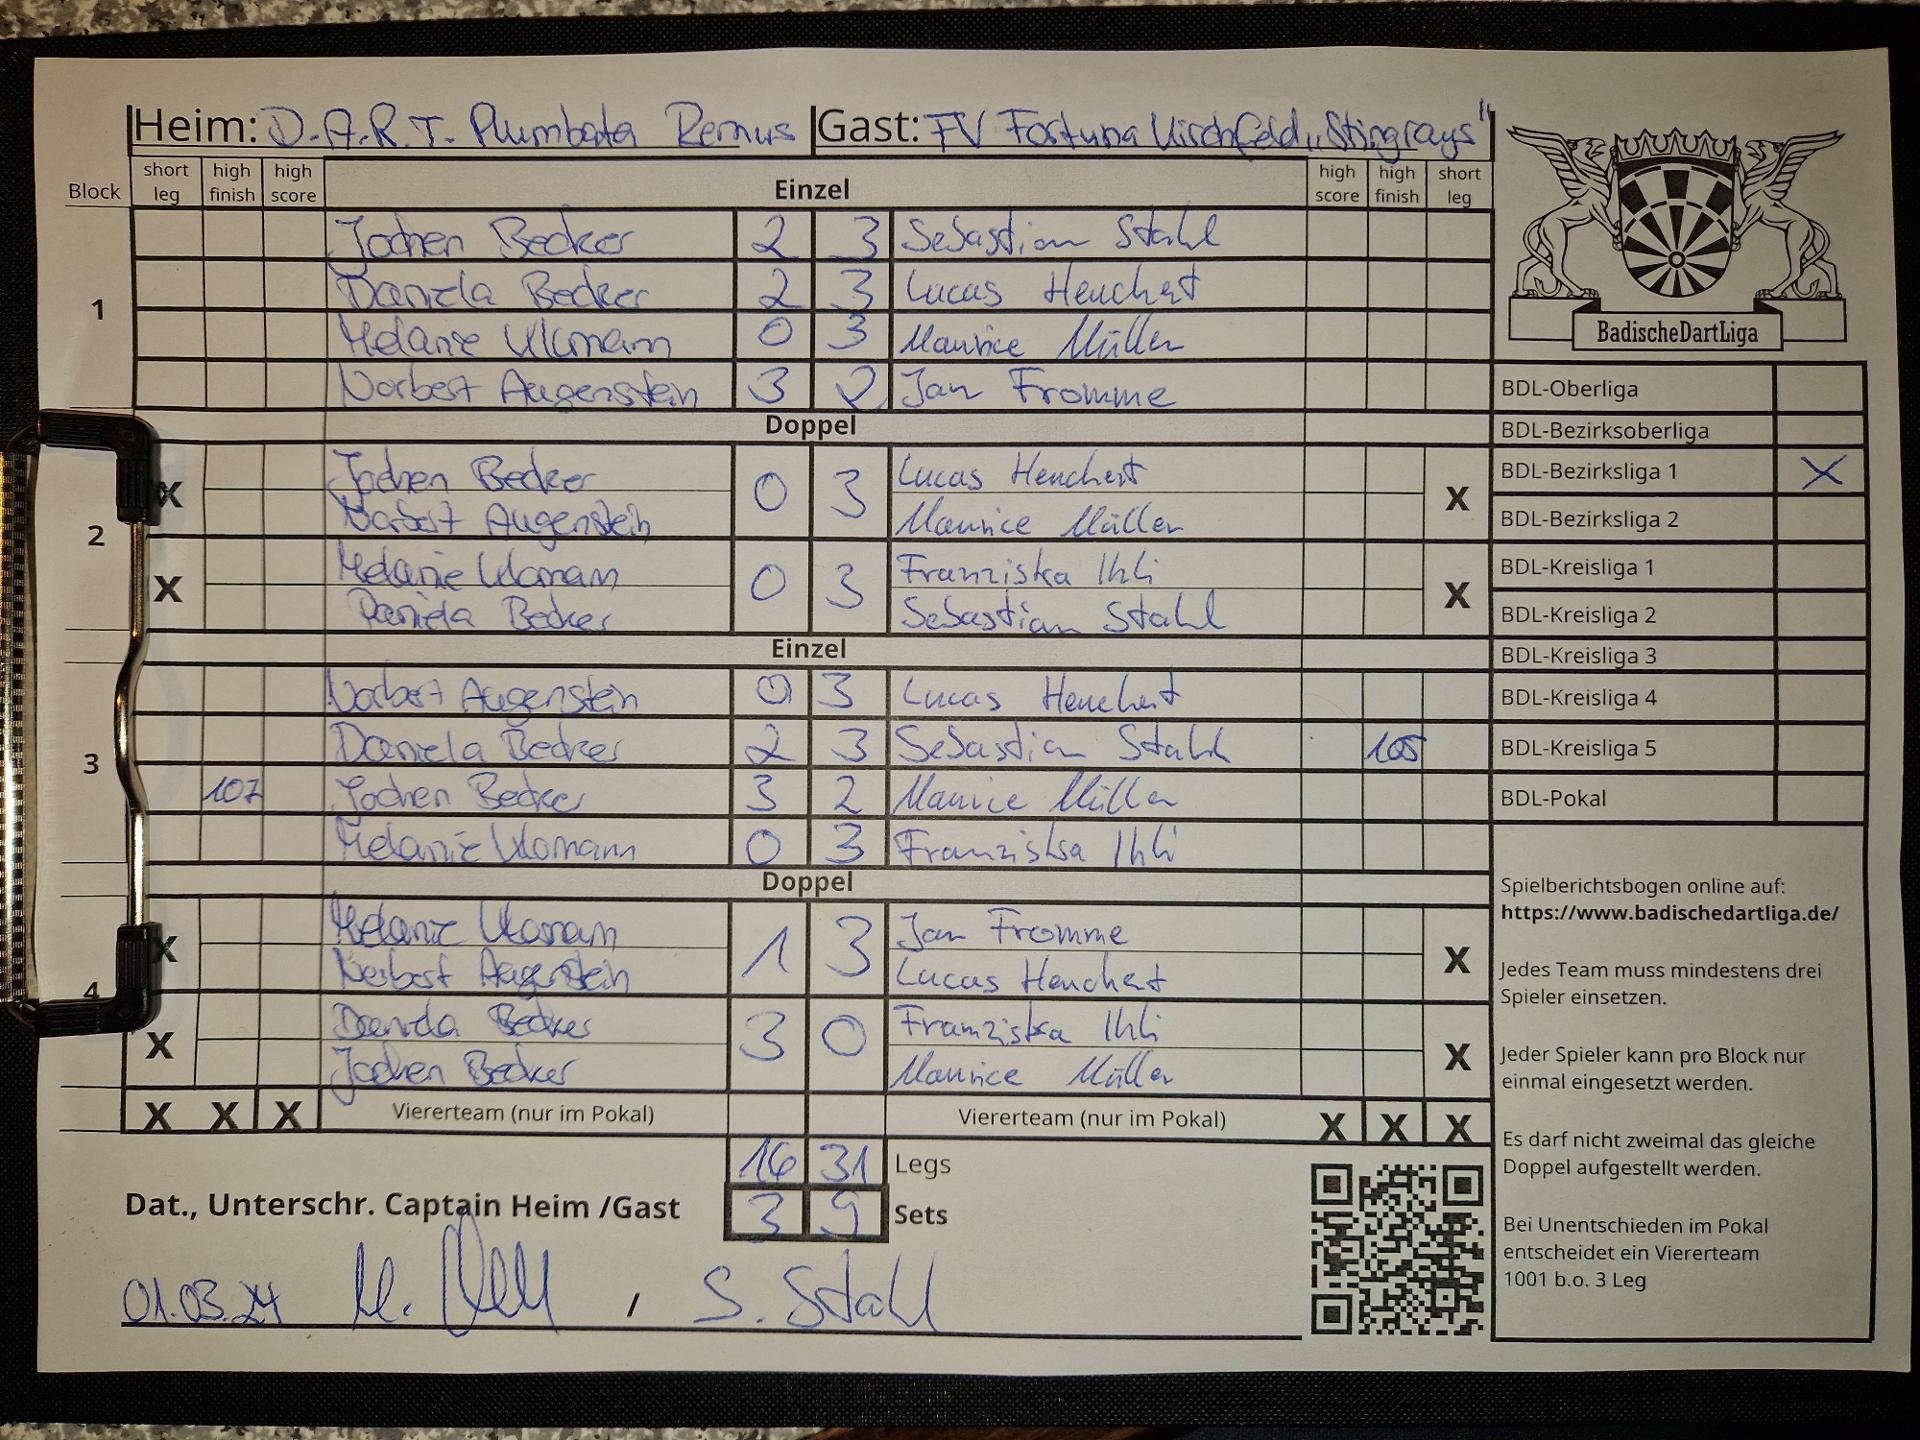 Heim: D.A.R.T. Plumbata Remus Gast: FV Fortuna Kirchfeld "Stingrays"
Block short leg high finish high score Einzel high score high finish short leg
1
Jochen Becker 2 3 Sebastian Stahl
Daniela Becker 2 3 Lucas Heuchert
Melanie 0 3 Maurice Müller
Norbert Augenstein 3 2 Jan Fromme
Doppel
2
X Jochen Becker 0 3 Lucas Heuchert X
Norbert Augenstein Maurice Müller
X Melanie 0 3 Franziska Ihli X
Daniela Becker Sebastian Stahl
Einzel
3
Norbert Augenstein 0 3 Lucas Heuchert
Daniela Becker 2 3 Sebastian Stahl 105
107 Jochen Becker 3 2 Maurice Müller
Melanie 0 3 Franziska Ihli
Doppel
4
X Melanie 1 3 Jan Fromme X
Norbert Augenstein Lucas Heuchert
X Daniela Becker 3 0 Franziska Ihli X
Jochen Becker Maurice Müller
X X X Viererteam (nur im Pokal) Viererteam (nur im Pokal) X X X
16 31 Legs
Dat., Unterschr. Captain Heim /Gast 3 9 Sets
01.03.24 / S. Stahl
BadischeDartLiga
BDL-Oberliga
BDL-Bezirksoberliga
BDL-Bezirksliga 1 X
BDL-Bezirksliga 2
BDL-Kreisliga 1
BDL-Kreisliga 2
BDL-Kreisliga 3
BDL-Kreisliga 4
BDL-Kreisliga 5
BDL-Pokal
Spielberichtsbogen online auf:
https://www.badischedartliga.de/
Jedes Team muss mindestens drei
Spieler einsetzen.
Jeder Spieler kann pro Block nur
einmal eingesetzt werden.
Es darf nicht zweimal das gleiche
Doppel aufgestellt werden.
Bei Unentschieden im Pokal
entscheidet ein Viererteam
1001 b.o. 3 Leg